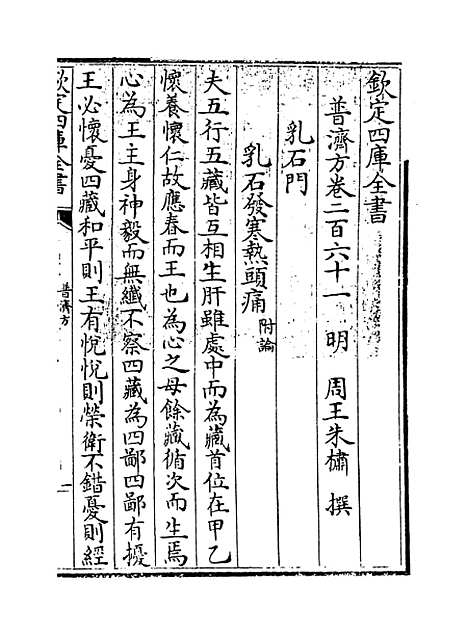 欽定四庫全書
普濟方卷二百六十一 明 周王朱橚 撰
乳石門
乳石發寒熱頭痛附論
夫五行五藏皆互相生肝雖處中而為藏首位在甲乙
懷養懷仁故應春而王也為心之母餘藏循次而生焉
心為王主身神毅而無纖不察四藏為四鄙四鄙有擾
王必懷憂四藏和平則王有悅悅則榮衛不錯憂則經
欽定四庫全書
普濟方
一